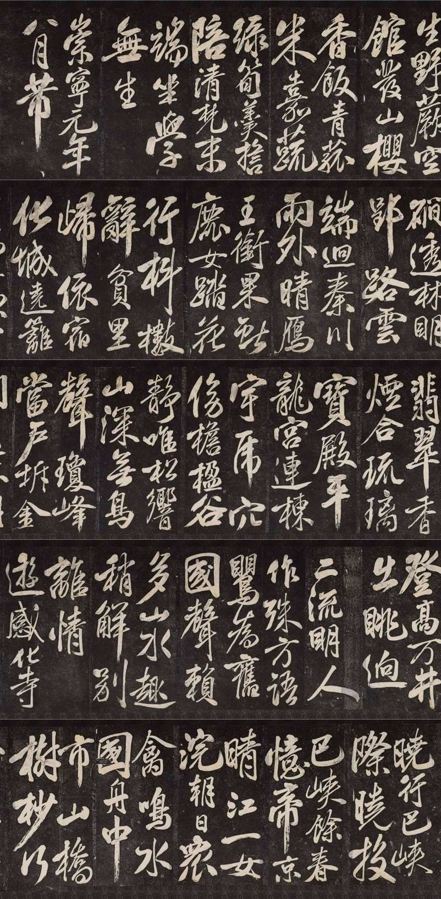 生野蕨空
館發山櫻
香飯青菰
米嘉蔬
綠筍羹擔
陪清梵末
端坐學
無生
崇寧元年
八月芾
澗透林明
郢路雲
端迥秦川
雨外晴鴈
王銜果獻
鹿女踏花
行抖擻
辭貧里
歸依宿
化城遶籬
翡翠香
煙合琉璃
寶殿平
龍宮連棟
宇虎穴
傍檐楹谷
靜唯松響
山深無鳥
聲瓊峰
當戶拆金
登高萬井
出眺迥
二流明人
作殊方語
鶯為舊
國聲賴
多山水趣
稍解別
離情
遊感化寺
曉行巴峽
際曉投
巴峽餘春
憶帝京
晴江一女
浣朝日眾
禽鳴水
國舟中
市山橋
樹杪行